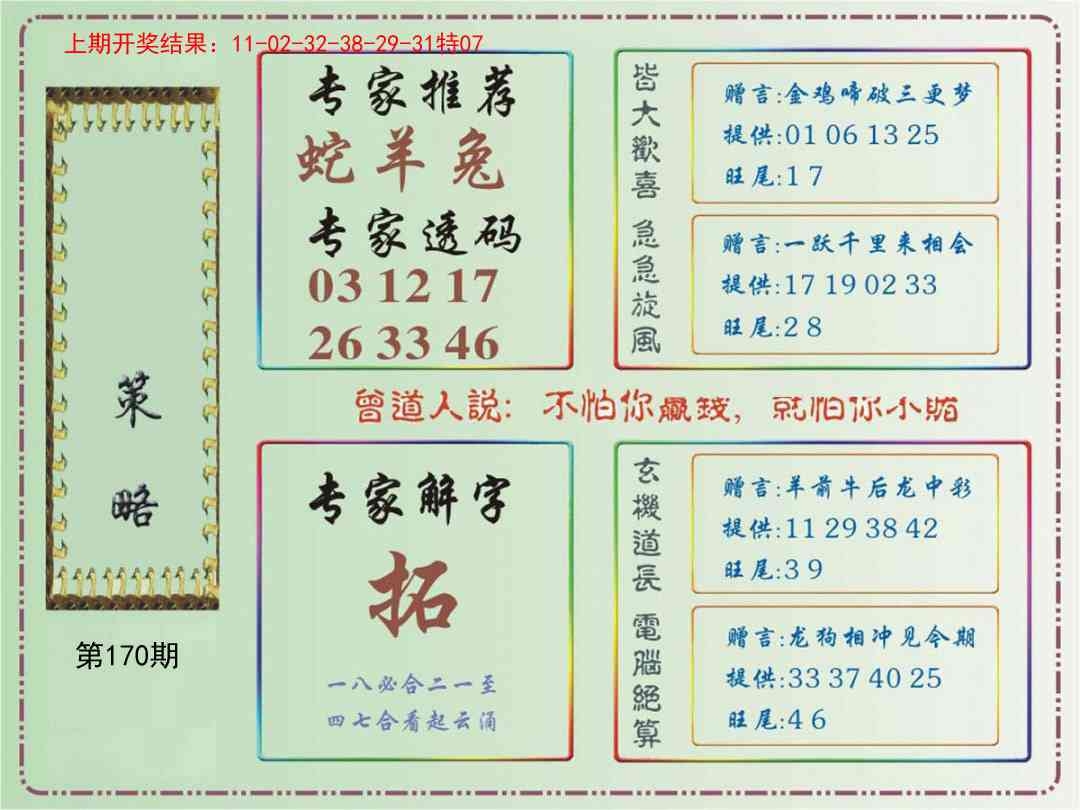 上期开奖结果：11-02-32-38-29-31特07
策
略
第170期
专家推荐
蛇羊兔
专家透码
03 12 17
26 33 46
皆大歡喜
赠言:金鸡啼破三更梦
提供:01 06 13 25
旺尾:1 7
急急旋風
赠言:一跃千里来相会
提供:17 19 02 33
旺尾:2 8
曾道人説: 不怕你贏錢, 就怕你不賭
专家解字
拓
一八必合二一至
四七合看起云涌
玄機道長
赠言:羊前牛后龙中彩
提供:11 29 38 42
旺尾:3 9
電腦絕算
赠言:龙狗相冲见今期
提供:33 37 40 25
旺尾:4 6